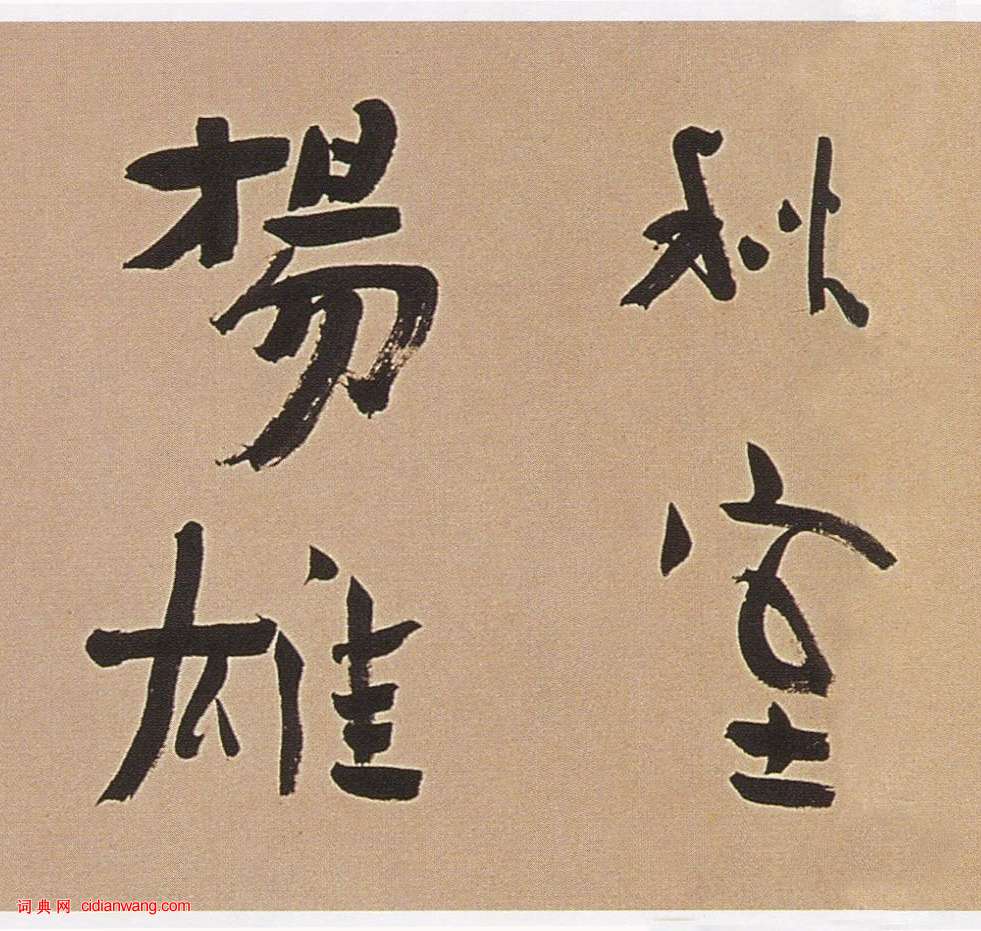 秋室
楊雄
词典网 cidianwang.com